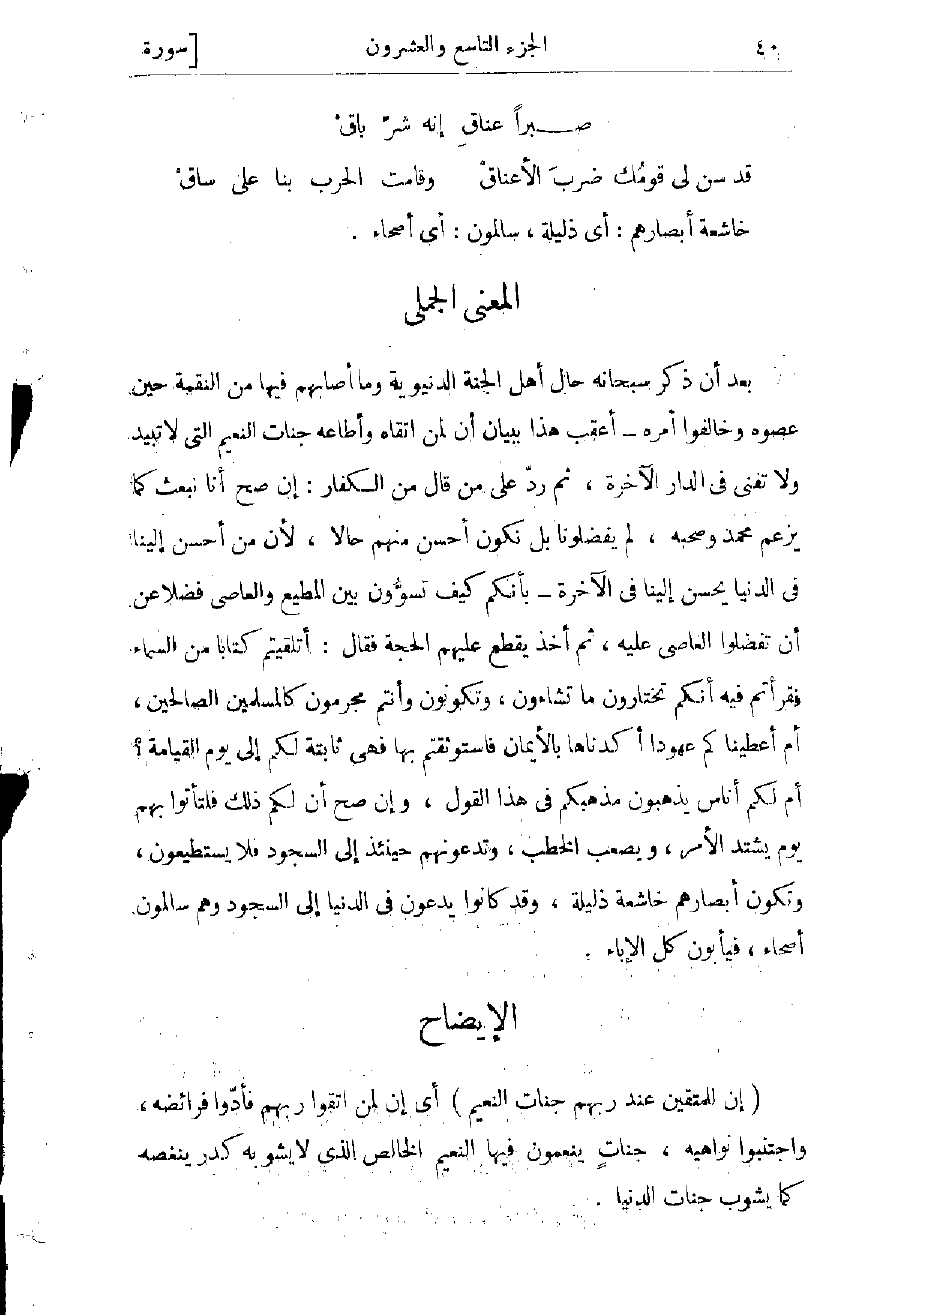 ٤٠ الجزء التاسع والعشرون [سورة
صبراً عناقِ إنه شرّ باقْ
قد سن لى قومُك ضربَ الأعناقْ وقامت الحرب بنا على ساقْ
خاشعة أبصارهم : أى ذليلة ، سالمون : أى أصحاء .
المعنى الجملى
بعد أن ذكر سبحانه حال أهل الجنة الدنيوية وما أصابهم فيها من النقمة حين
عصوه وخالفوا أمره – أعقب هذا ببيان أن لمن اتقاه وأطاعه جنات النعيم التى لا تبيد
ولا تفنى فى الدار الآخرة ، ثم ردّ على من قال من الكفار : إن صح أنا نبعث كما
يزعم محمد وصحبه ، لم يفضلونا بل نكون أحسن منهم حالا ، لأن من أحسن إلينا
فى الدنيا يحسن إلينا فى الآخرة – بأنكم كيف تسوُّون بين المطيع والعاصى فضلا عن
أن تفضلوا العاصى عليه ، ثم أخذ يقطع عليهم الحجة فقال : أتلقيتم كتابا من السماء
فقرأتم فيه أنكم تختارون ما تشاءون ، وتكونون وأنتم مجرمون كالمسلمين الصالحين ،
أم أعطيناكم عهودا أكدناها بالأيمان فاستوثقتم بها فهى ثابتة لكم إلى يوم القيامة ؟
أم لكم أناس يذهبون مذهبكم فى هذا القول ، وإن صح أن لكم ذلك فلتأتوا بهم
يوم يشتد الأمر ، ويصعب الخطب ، وتدعونهم حينئذ إلى السجود فلا يستطيعون ،
وتكون أبصارهم خاشعة ذليلة ، وقد كانوا يدعون فى الدنيا إلى السجود وهم سالمون
أصحاء ، فيأبون كل الإباء .
الإيضاح
( إن للمتقين عند ربهم جنات النعيم ) أى إن لمن اتقوا ربهم فأدّوا فرائضه ،
واجتنبوا نواهيه ، جناتٍ ينعمون فيها النعيم الخالص الذي لا يشوبه كدر ينغصه
كما يشوب جنات الدنيا .